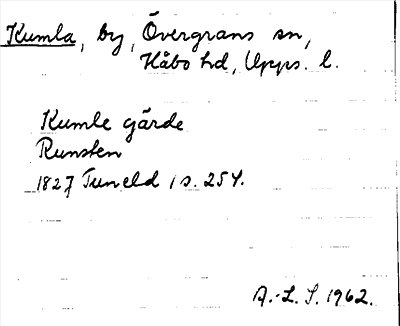 Kumla, by, Övergrans sn,
Håbo hd, Upps. l.
Kumle gärde
Runsten
1827 Tuneld 1 s. 254.
A.-L. S. 1962.